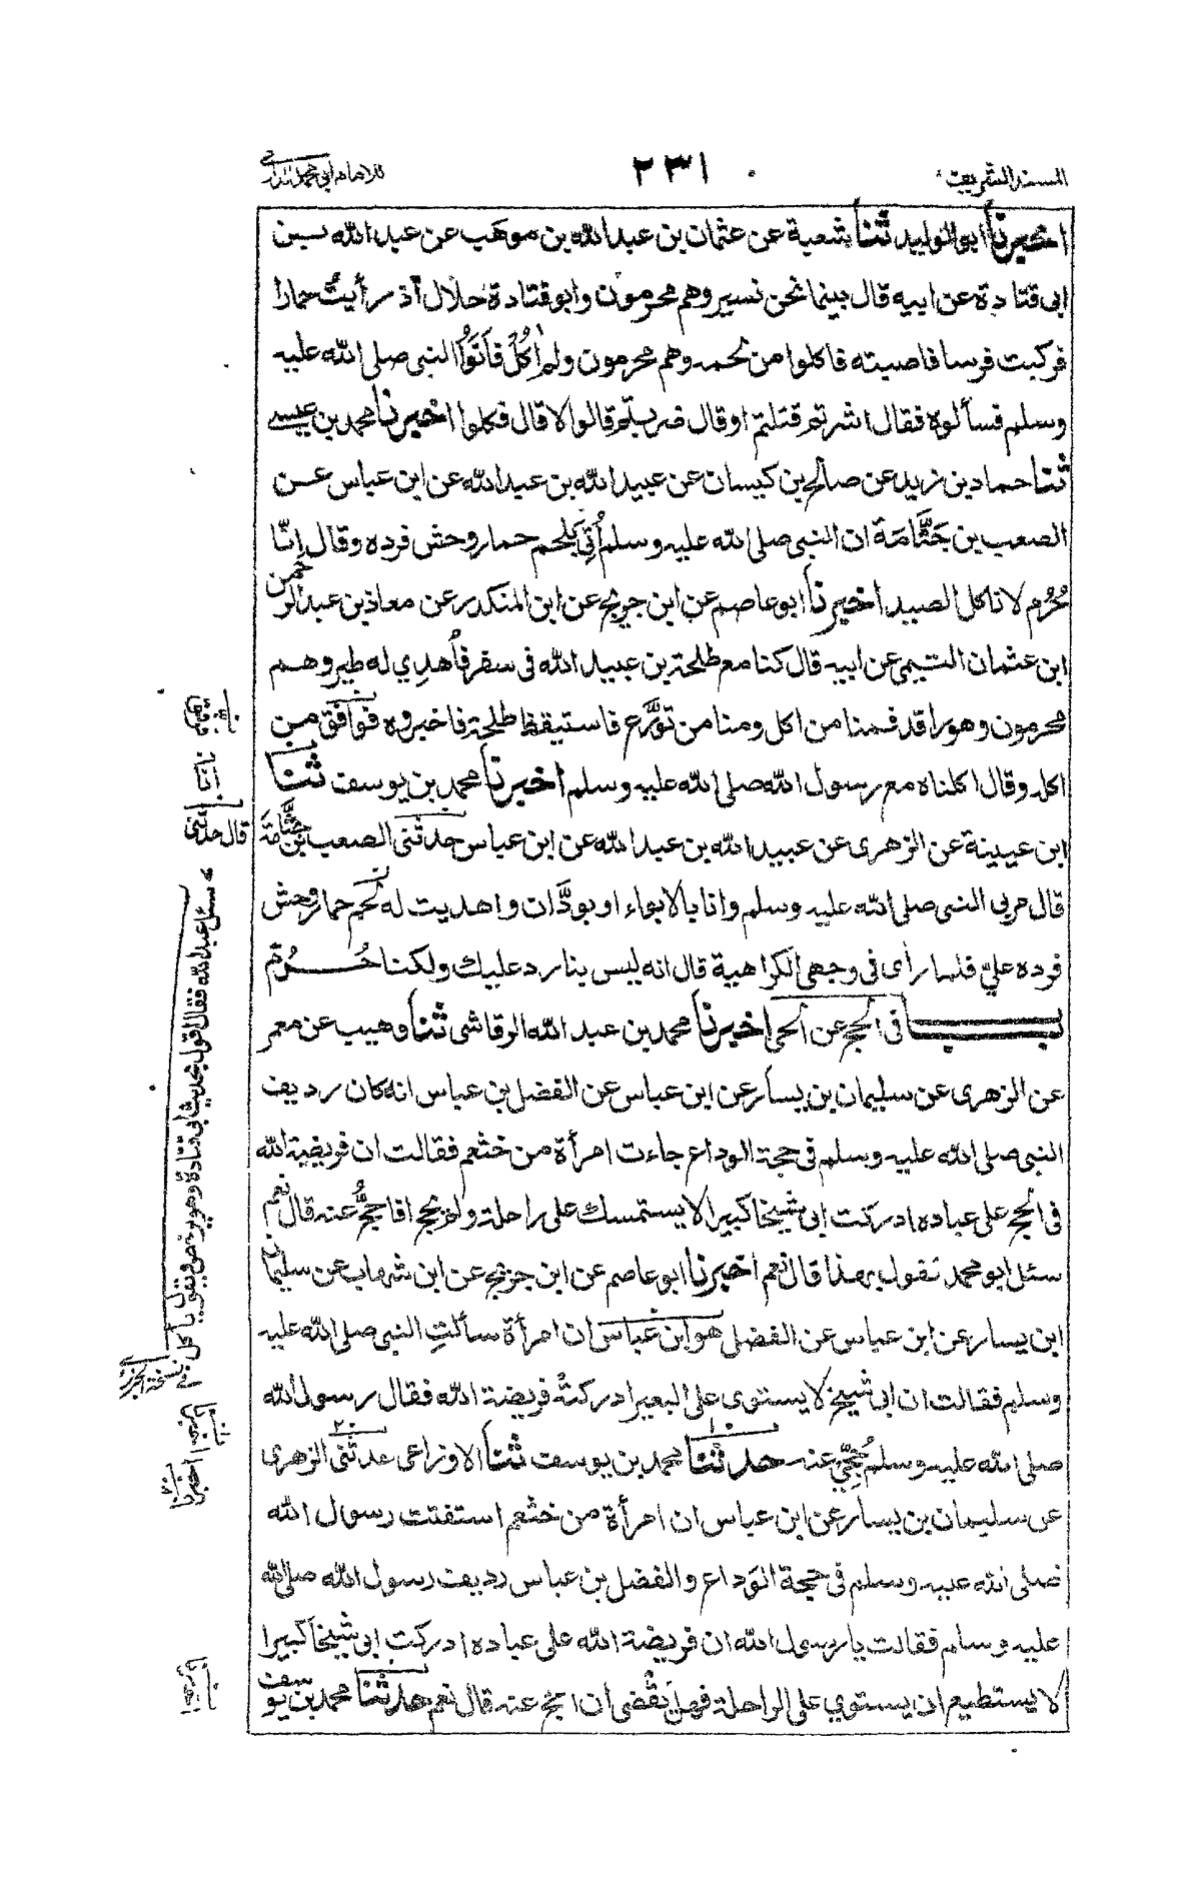 المسند الشريف
٢٣١
للامام ابى محمد الدارمى
اخبرنا ابو الوليد ثنا شعبة عن عثمان بن عبد الله بن موهَب عن عبد الله بـن
ابى قتادة عن ابيه قال بينما نحن نسير وهم محرمون وابو قتادة حلال اذ رأيتُ حمارا
فركبت فرسا فاصبته فاكلوا من لحمه وهم محرمون ولم اٰكُلْ فَاَتَوُا النبى صلى الله عليه
وسلم فسألوه فقال اشرتم قتلتم او قال ضربتم قالوا لا قال فكلوا اخبرنا محمد بن عيسى
ثنا حماد بن زيد عن صالح بن كيسان عن عبيد الله بن عبد الله عن ابن عباس عـن
الصعب بن جَثَّامَةَ ان النبى صلى الله عليه وسلم اُتِىَ بلحم حمار وحش فرده وقال اِنّا
حُرُم لا نأكل الصيد اخبرنا ابو عاصم عن ابن جريج عن ابن المنكدر عن معاذ بن عبد الرحمن
ابن عثمان التيمى عن ابيه قال كنا مع طلحة بن عبيد الله فى سفر فاُهدِي له طير وهـم
محرمون وهو راقد فمنا من اكل ومنا من تورَّع فاستيقظ طلحة فاخبروه فوافق من
اكله وقال اكلناه مع رسول الله صلى الله عليه وسلم اخبرنا محمد بن يوسف ثنا
ابن عيينة عن الزهرى عن عبيد الله بن عبد الله عن ابن عباس حدثنى الصعب بن جثَّامة
قال مر بى النبى صلى الله عليه وسلم وانا بالابواء او بودَّان واهديت له لحم حمار وحش
فرده علىّ فلما رأى فى وجهى الكراهية قال انه ليس بنا رد عليك ولكنا حُـــرُم
بـــاب فى الحج عن الحى اخبرنا محمد بن عبد الله الرقاشى ثنا وهيب عن معمر
عن الزهرى عن سليمان بن يسار عن ابن عباس عن الفضل بن عباس انه كان رديف
النبى صلى الله عليه وسلم فى حجة الوداع جاءت امرأة من خثعم فقالت ان فريضة الله
فى الحج على عباده ادركت ابى شيخا كبيرا لا يستمسك على راحلة ولم يحج افاحجُّ عنه قال نعم
سئل ابو محمد تقول بهذا قال نعم اخبرنا ابو عاصم عن ابن جريج عن ابن شهاب عن سليمان
ابن يسار عن ابن عباس عن الفضل هو ابن عباس ان امرأة سألتِ النبى صلى الله عليه
وسلم فقالت ان ابى شيخ لا يستوى على البعير ادركتهُ فريضة الله فقال رسول الله
صلى الله عليه وسلم حُجِّىْ عنه حدثنا محمد بن يوسف ثنا الاوزاعى حدثنى الزهرى
عن سليمان بن يسار عن ابن عباس ان امرأة من خثعم استفتت رسول الله
صلى الله عليه وسلم فى حجة الوداع والفضل بن عباس رديف رسول الله صلى الله
عليه وسلم فقالت يا رسول الله ان فريضة الله على عباده ادركت ابى شيخا كبيرا
لا يستطيع ان يستوي على الراحلة فهل يقْضى ان احج عنه قال نعم حدثنا محمد بن يوسف
قال حدثنى
سئل عبد الله فقال اقول بحديث ابى قتادة وهو يرخص ويقول يأكل
اخبرنا